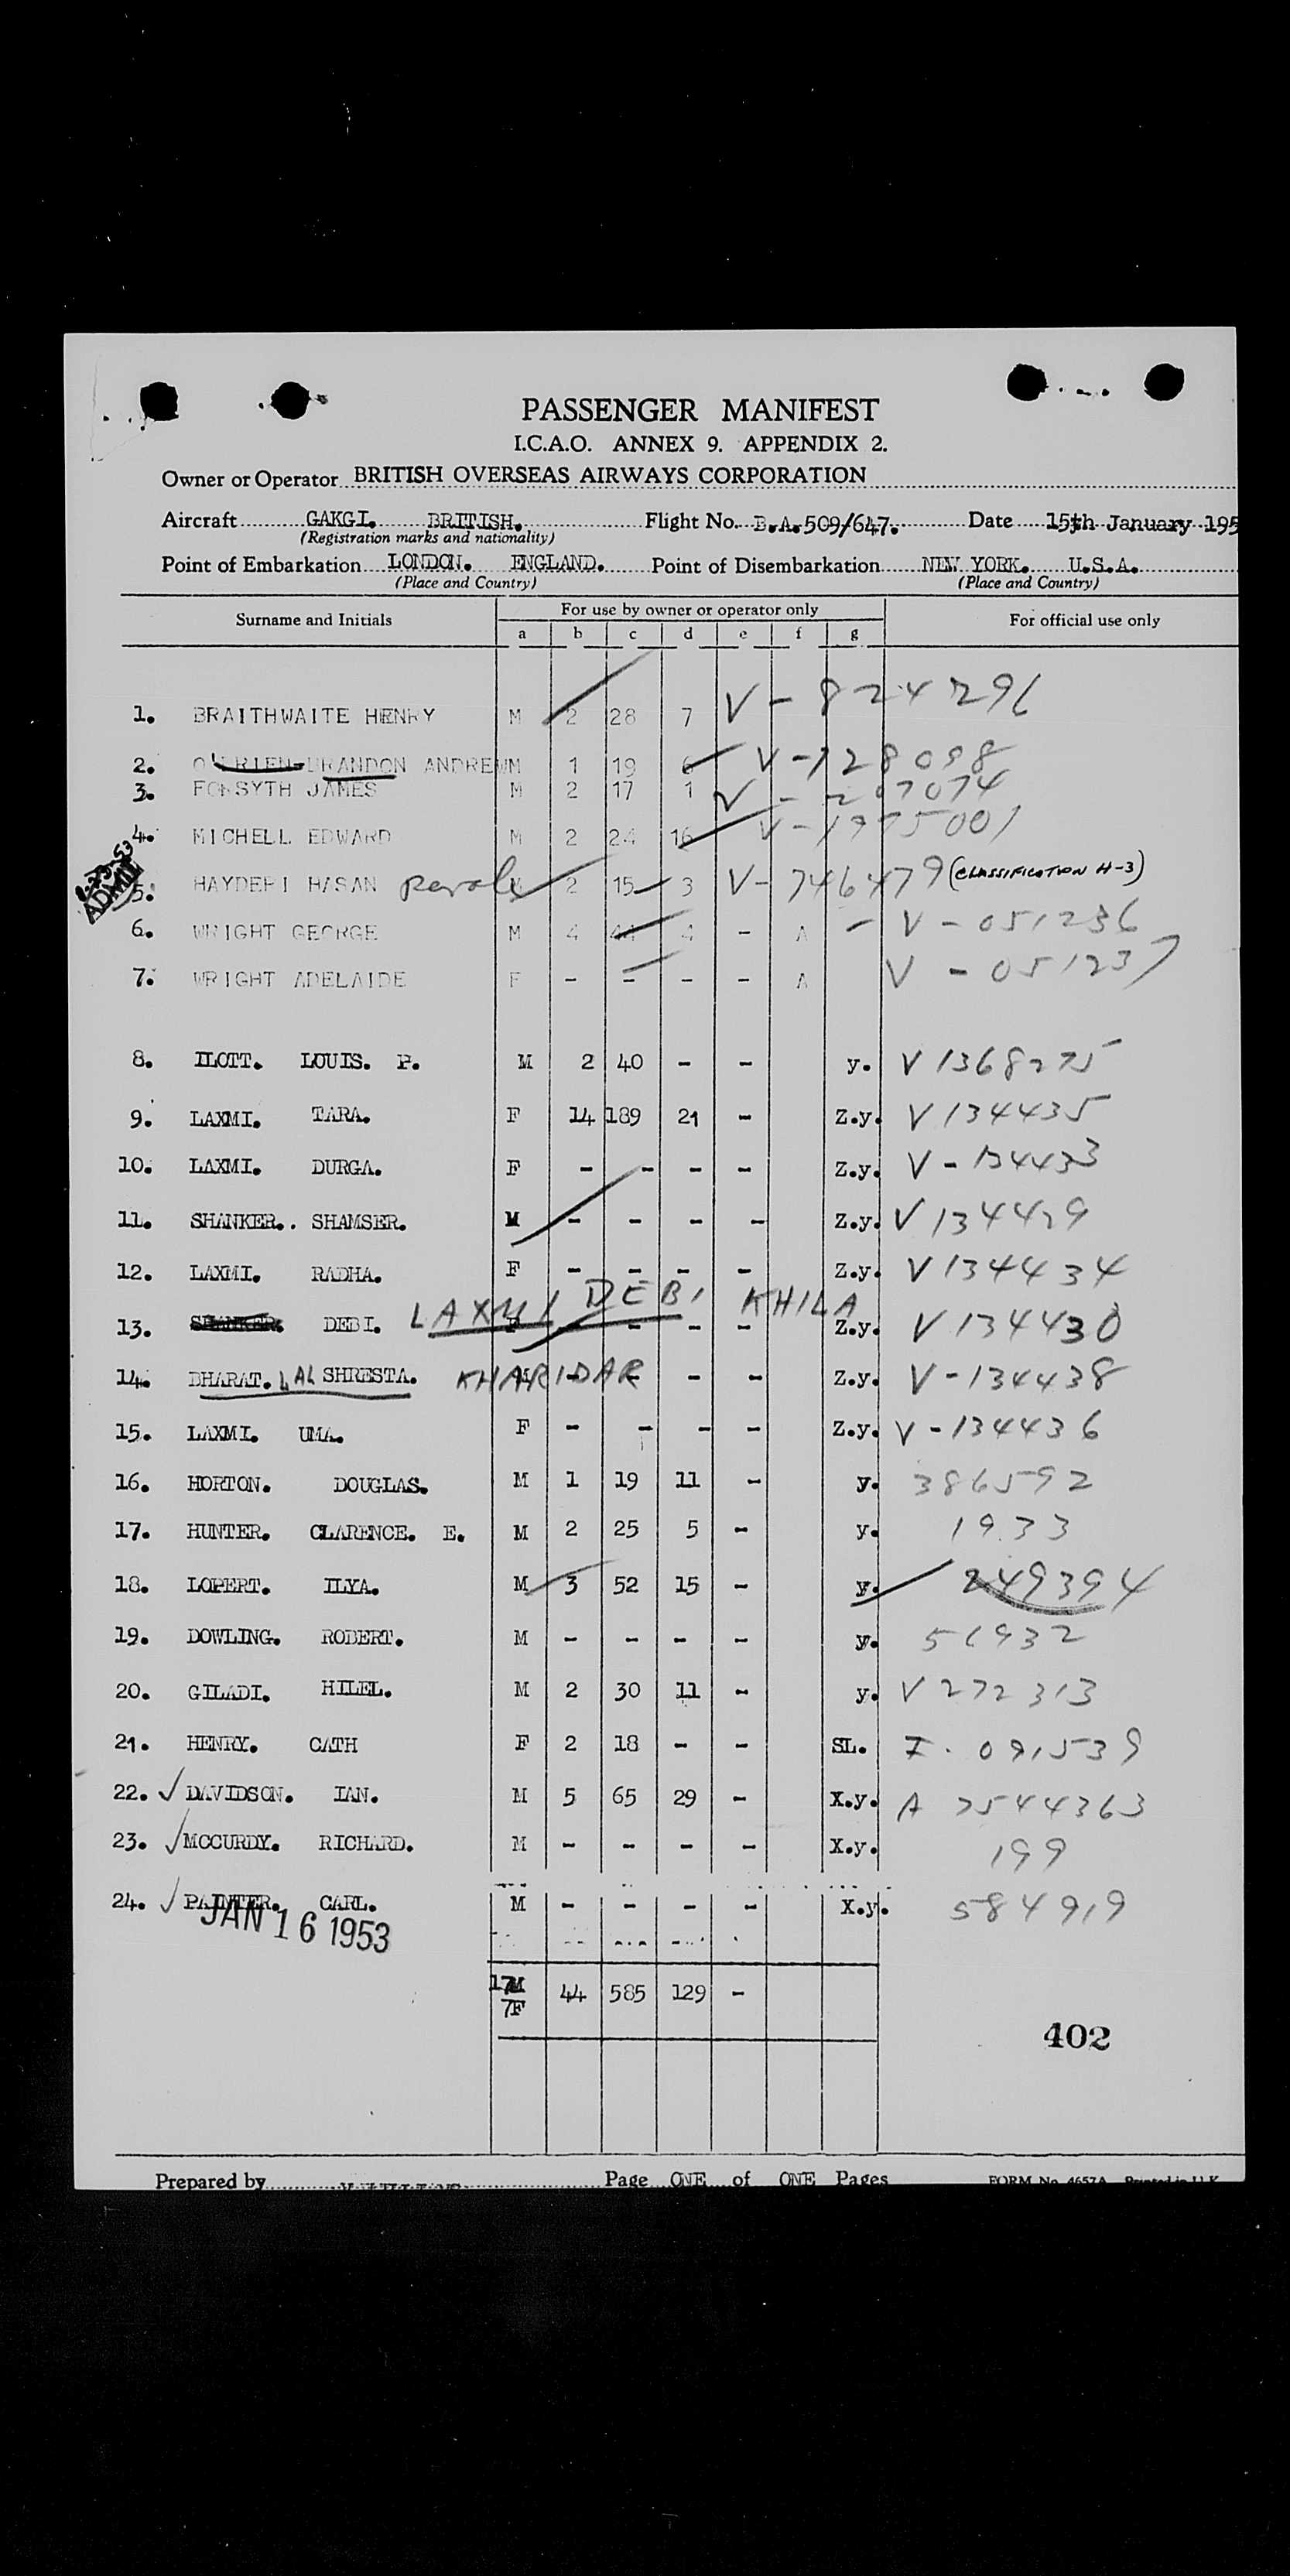 PASSENGER MANIFEST
I.C.A.O. ANNEX 9. APPENDIX 2.
Owner or Operator BRITISH OVERSEAS AIRWAYS CORPORATION
Aircraft GAKGI. BRITISH. Flight No. B.A.509/647. Date 15th January 195
(Registration marks and nationality)
Point of Embarkation LONDON. ENGLAND. Point of Disembarkation NEW YORK. U.S.A.
(Place and Country) (Place and Country)
Surname and Initials For use by owner or operator only For official use only
a b c d e f g
1. BRAITHWAITE HENRY M 2 28 7 V-824296
2. O'BRIEN-BRANDON ANDREW M 1 19 6 V-128098
3. FORSYTH JAMES M 2 17 1 V-
4. MICHELL EDWARD M 2 24 16 V-1975001
1-23-53
ADMIT
5. HAYDERI HASAN parole 2 15 3 V-746479 (CLASSIFICATION H-3)
6. WRIGHT GEORGE M 4 44 4 - A - V-051236
7. WRIGHT ADELAIDE F - - - - A V-051237
8. ILOTT. LOUIS. P. M 2 40 - - y. V 1368275
9. LAXMI. TARA. F 14 189 21 - Z.y. V 134435
10. LAXMI. DURGA. F - - - - Z.y. V-134433
11. SHANKER.. SHAMSER. M - - - - Z.y. V 134429
12. LAXMI. RADHA. F - - - - Z.y. V 134434
13. SHANKER. DEBI. LAXMI DEBI KHILA F - - - - Z.y. V 134430
14. BHARAT. LAL SHRESTA. KHARIDAR - - - Z.y. V-134438
15. LAXMI. UMA. F - - - - Z.y. V-134436
16. HORTON. DOUGLAS. M 1 19 11 - y. 386592
17. HUNTER. CLARENCE. E. M 2 25 5 - y. 1933
18. LOPERT. ILYA. M 3 52 15 - y. 249394
19. DOWLING. ROBERT. M - - - - y. 51932
20. GILADI. HILEL. M 2 30 11 - y. V 272313
21. HENRY. CATH F 2 18 - - SL. I-091539
22. ✓ DAVIDSON. IAN. M 5 65 29 - X.y. A 7544363
23. ✓ MCCURDY. RICHARD. M - - - - X.y. 199
24. ✓ PAINTER. CARL. M - - - - X.y. 584919
JAN 16 1953
17M
7F 44 585 129 -
402
Prepared by Page ONE of ONE Pages FORM No. 4657A Printed in U.K.